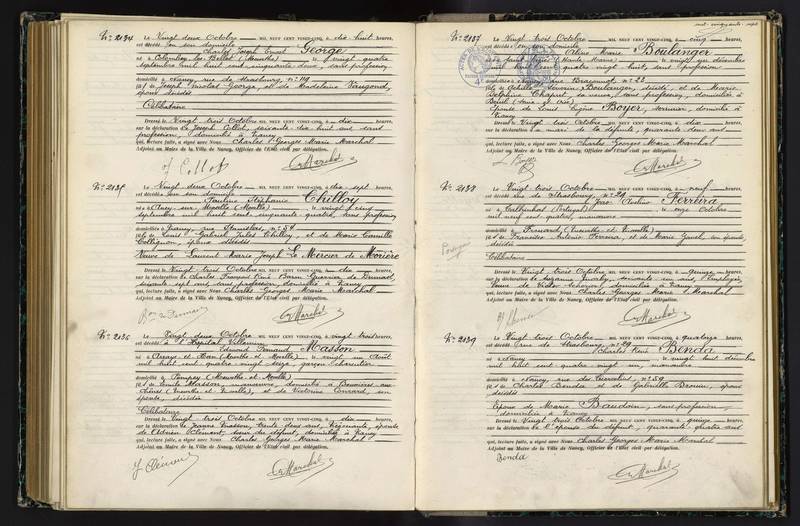 N° 2134 Le Vingt deux Octobre MIL NEUF CENT VINGT-CINQ, à dix huit heures,
est décédé en son domicile
Charles Joseph Ernest George
né à Colombey les Belles (Meurthe) le vingt quatre
septembre mil huit cent cinquante deux, sans profession
domicilié à Nancy, rue de Strasbourg, n° 119
fils de Joseph Nicolas George, et de Madeleine Vaugond,
époux décédés
Célibataire
Dressé le Vingt trois Octobre MIL NEUF CENT VINGT-CINQ, à dix heures,
sur la déclaration de Joseph Collot, soixante dix huit ans, sans
profession, domicilié à Nancy
qui, lecture faite, a signé avec Nous Charles Georges Marie Maréchal
Adjoint au Maire de la Ville de Nancy, Officier de l'Etat civil par délégation.
J Collot
GMarchal
N° 2135 Le Vingt deux Octobre MIL NEUF CENT VINGT-CINQ, à dix sept heures,
est décédée en son domicile
Pauline Stéphanie Chilloy
née à (Moselle) le vingt cinq
septembre mil huit cent cinquante quatre, sans profession
domiciliée à Nancy, rue Stanislas, n° 54
fille de Louis Gabriel Jules Chilloy, et de Marie Camille
Collignon, époux décédés
Veuve de Laurent Marie Joseph Le Mercier de Morière
Dressé le Vingt trois Octobre MIL NEUF CENT VINGT-CINQ, à dix heures,
sur la déclaration de Charles François René Baron
soixante sept ans, sans profession, domicilié à Nancy
qui, lecture faite, a signé avec Nous Charles Georges Marie Maréchal
Adjoint au Maire de la Ville de Nancy, Officier de l'Etat civil par délégation.
GMarchal
N° 2136 Le Vingt deux Octobre MIL NEUF CENT VINGT-CINQ, à vingt trois heures,
est décédé à l'Hôpital Villemin
Edmond Fernand Masson
né à Arraye et Han (Meurthe et Moselle) le vingt un Août
mil huit cent quatre vingt seize, garçon charcutier
domicilié à Pompey (Meurthe et Moselle)
fils de Emile Masson, manoeuvre, domicilié à Bouxières aux
Chênes (Meurthe et Moselle), et de Victorine Conrard, son
épouse, décédée
Célibataire
Dressé le Vingt trois Octobre MIL NEUF CENT VINGT-CINQ, à dix heures,
sur la déclaration de Jeanne Masson, trente deux ans, épouse
de Clément, soeur du défunt, domiciliée à Nancy
qui, lecture faite, a signé avec Nous Charles Georges Marie Maréchal
Adjoint au Maire de la Ville de Nancy, Officier de l'Etat civil par délégation.
J Clément
GMarchal
N° 2137 Le Vingt trois Octobre MIL NEUF CENT VINGT-CINQ, à cinq heures,
est décédée en son domicile
Marie Boulanger
née à (Haute Marne) le vingt un décembre
mil huit cent quatre vingt huit, sans profession
domiciliée à Nancy, rue Braconnot n° 23
fille de Achille Boulanger, décédé, et de Marie
Delphine Chaput, sa veuve, sans profession, domiciliée à
Epouse de Louis Eugène Boyer, domicilié à
Nancy
Dressé le Vingt trois Octobre MIL NEUF CENT VINGT-CINQ, à dix heures,
sur la déclaration du mari de la défunte, quarante deux ans
qui, lecture faite, a signé avec Nous Charles Georges Marie Maréchal
Adjoint au Maire de la Ville de Nancy, Officier de l'Etat civil par délégation.
L Boyer
GMarchal
N° 2138 Le Vingt trois Octobre MIL NEUF CENT VINGT-CINQ, à neuf heures,
est décédé rue de Strasbourg, n° 29
Joao Ferreira
né à (Portugal) le onze Octobre
mil neuf cent quatre, manoeuvre
domicilié à Frouard (Meurthe et Moselle)
fils de Francisco Antonio Ferreira, et de Maria, son épouse,
décédés
Célibataire
Dressé le Vingt trois Octobre MIL NEUF CENT VINGT-CINQ, à quinze heures,
sur la déclaration de Suzanne, soixante un ans, employée,
Veuve de Victor, domiciliée à Nancy
qui, lecture faite, a signé avec Nous Charles Georges Marie Maréchal
Adjoint au Maire de la Ville de Nancy, Officier de l'Etat civil par délégation.
GMarchal
N° 2139 Le Vingt trois Octobre MIL NEUF CENT VINGT-CINQ, à quatorze heures,
est décédé rue de Strasbourg n° 29
Charles René Benda
né à Nancy le vingt huit décembre
mil huit cent quatre vingt un, manoeuvre
domicilié à Nancy, rue n° 50
fils de Charles Benda et de Gabrielle Drouin, époux
décédés
Epoux de Marie Baudoin, sans profession,
domiciliée à Nancy
Dressé le Vingt trois Octobre MIL NEUF CENT VINGT-CINQ, à quinze heures,
sur la déclaration de l'épouse du défunt, quarante quatre ans
qui, lecture faite, a signé avec Nous Charles Georges Marie Maréchal
Adjoint au Maire de la Ville de Nancy, Officier de l'Etat civil par délégation.
Benda
GMarchal